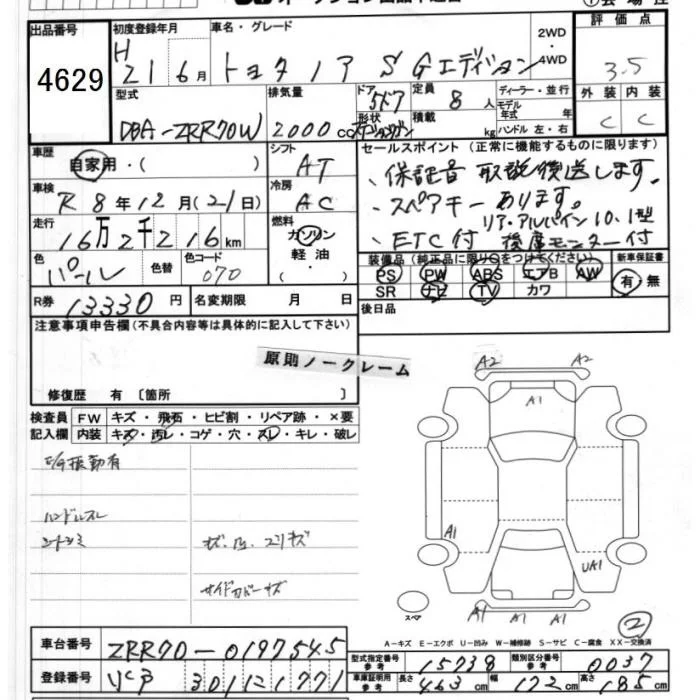 出品番号
4629
初度登録年月
H 21 6月
車名・グレード
トヨタ ノア S Gエディション
2WD
・
4WD
評価点
3.5
外装 内装
C C
型式
DBA-ZRR70W
排気量
2000 cc
ドア
形状
5ドア
定員
8 人
積載
kg
ディーラー・並行
モデル年式 年
ハンドル 左・右
車歴
自家用・( )
車検
R 8年 12月 (21日)
走行
16万2千216km
色
パール
色替
色コード
070
シフト
AT
冷房
AC
燃料
ガソリン
軽油
・
R券
13330 円
名変期限 月 日
セールスポイント (正常に機能するものに限ります)
、保証書 取説後送します。
、スペアキーあります。
リア・アルパイン10.1型
、ETC付 後席モニター付
装備品(純正品に限り○をつけてください)
PS PW ABS エアB AW
SR ナビ TV カワ
新車保証書
有・無
後日品
注意事項申告欄(不具合内容等は具体的に記入して下さい)
原則ノークレーム
修復歴 有〔箇所 〕
検査員
記入欄
FW キズ・飛石・ヒビ割・リペア跡・×要
内装 キズ・汚レ・コゲ・穴・スレ・キレ・破レ
E/G振動有
ハンドルスレ
シートシミ
サイドカバーキズ
A2 A2
A1
A1
UA1
A1 A1 A1
スペア
2
A-キズ E-エクボ U-凹み W-補修跡 S-サビ C-腐食 XX-交換済
車台番号
ZRR70-0197545
登録番号
301 1771
型式指定番号
参考
15738
類別区分番号
参考
0037
車庫証明用
参考
長さ 463 cm
幅 172 cm
高さ 185 cm